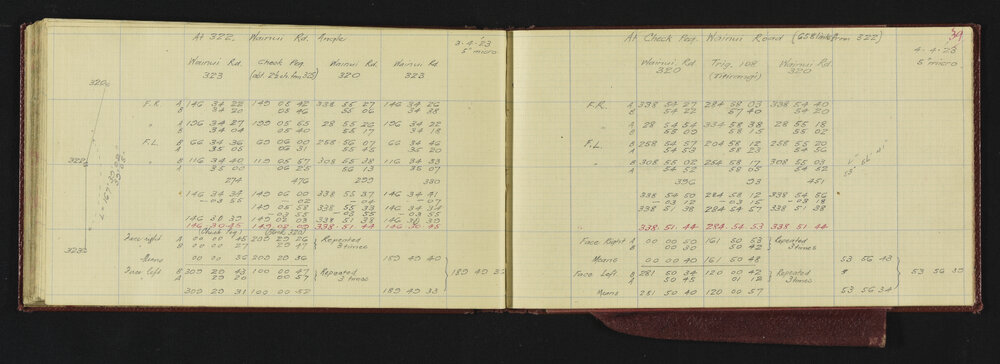 At 322, Wainui Rd. Angles
3-4-'23
5" micro
Wainui Rd. Check Peg Wainui Rd. Wainui Rd
323 320 323
F.R. A 146 34 22 149 05 42 338 55 27 146 34 26
B 34 20 05 46 55 06 34 38
" A 196 34 27 199 05 55 28 55 26 196 34 22
B 34 04 05 40 55 17 34 18
F.L. A 66 34 36 69 06 00 258 56 07 66 34 46
B 35 05 06 31 55 45 35 20
" B 116 34 40 119 05 57 308 55 38 116 34 33
A 35 00 06 25 56 13 35 07
274 476 299 330
" 146 34 34 149 06 00 338 55 37 146 34 41
-03 55 -02 -04 -07
149 05 58 338 55 33 146 34 34
-03 55 -03 55 -03 55
146 30 39 149 02 03 338 51 38 146 30 39
146 30 45 149 02 09 338 51 44 146 30 45
(Check Peg)
Face right A 00 00 45 209 29 26 Repeated
B 00 27 29 47 3 times
Means 00 00 36 209 29 36 189 49 40
Face left B 309 29 43 100 00 47 Repeated 189 49 3
A 29 20 00 57 3 times
309 29 31 100 00 52 189 49 33
320
322
323
39
At Check Peg Wainui Road
4-4-'23
5" micro
Wainui Rd. Trig. 108 Wainui Rd.
320 320
F.R. A 338 54 27 284 58 03 338 54 40
B 54 22 57 40 54 20
" A 28 54 54 334 58 38 28 55 18
B 55 09 58 15 55 02
F.L. A 258 54 57 204 58 12 258 55 20
B 54 53 58 23 54 56
" B 308 55 02 254 58 17 308 55 03
A 54 52 58 05 54 52
396 93 451
338 54 50 284 58 12 338 54 56
-03 12 -03 15 -03 18
338 51 38 284 54 57 338 51 38
" 338 51 44 284 54 53 338 51 44
Face Right A 00 00 50 161 50 53 Repeated
B 00 30 50 42 3 times
Means 00 00 40 161 50 48 53 56 43
Face Left. B 281 50 34 120 00 42 Repeated 53 56 39
A 50 45 01 12 3 times
Means 281 50 40 120 00 57 53 56 34